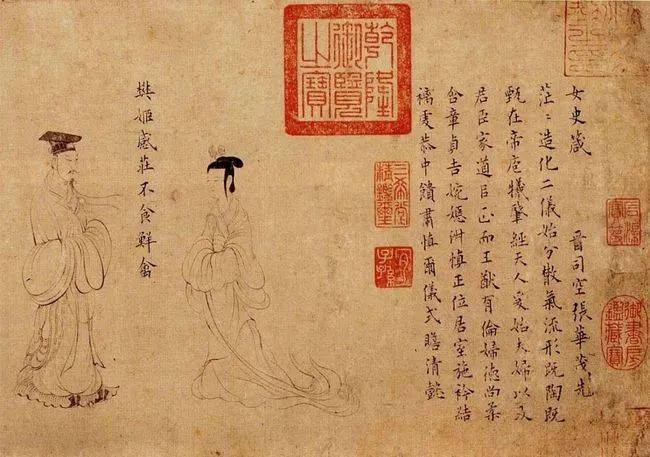 女史箴 晉司空張華茂先
茫〻造化二儀始分散氣流形既陶既
甄在帝庖犧肇經天人爰始夫婦以及
君臣家道㠯正而王猷有倫婦德尚柔
含章貞吉婉嫕淑慎正位居室施衿結
褵虔恭中饋肅慎爾儀式瞻清懿
樊姬感莊不食鮮禽
乾隆御覽之寶
三希堂精鑒璽
宜子孫
石渠寶笈
御書房鑑藏寶